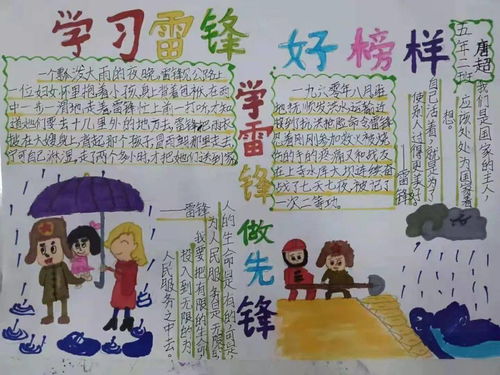 学习雷锋
好榜样
唐超
五年二班
一个瓢泼大雨的夜晚,雷锋见公路上
一位妇女怀里抱着小孩,身上背着包袱,在雨
中一步一滑地走着,雷锋忙上前一打听,才知
道她们要去十几里外的地方去,雷锋把雨衣
披在大嫂身上,抱起那个孩子,冒着风雨里去了
自己淋湿,走了两个多小时,才把她们送到家
一九六零年八月
抗洪抢险命令雷锋
伤的手的疼痛又和战友
在上寺水库大坝连续奋
战了七天七夜,被记了
一次二等功。
学雷锋
做先锋
我们是国家的主人,
应该处处为国家着
想。
自己活着,就是为了
使别人过得更美好
雷锋
人的生命是有的可是
为人民服务是无限的
我要把有限的生命
投入到无限的为
人民服务之中去。
——雷锋